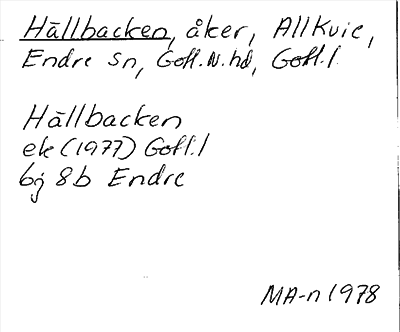 Hällbacken, åker, Allkvie,
Endre sn, Gotl. N. hd, Gotl. l
Hällbacken
ek (1977) Gotl. l
bj 8b Endre
MA-n 1978